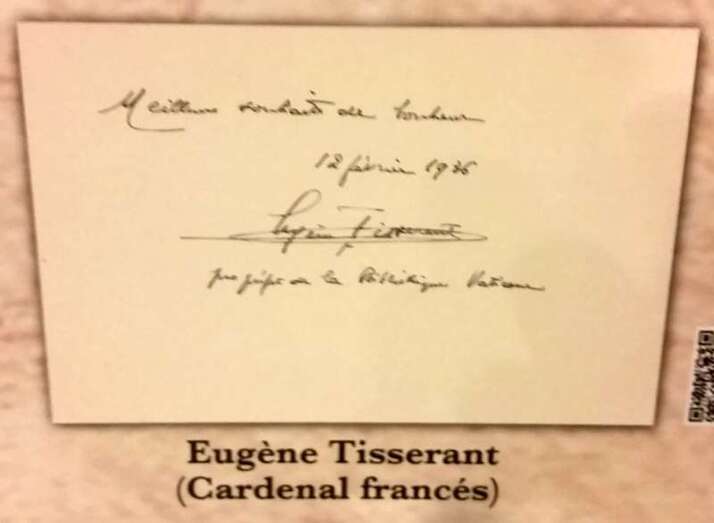 Meilleurs souhaits de bonheur
12 février 1936
Eugène Tisserant
pro préfet de la Bibliothèque Vaticane
Eugène Tisserant
(Cardenal francés)